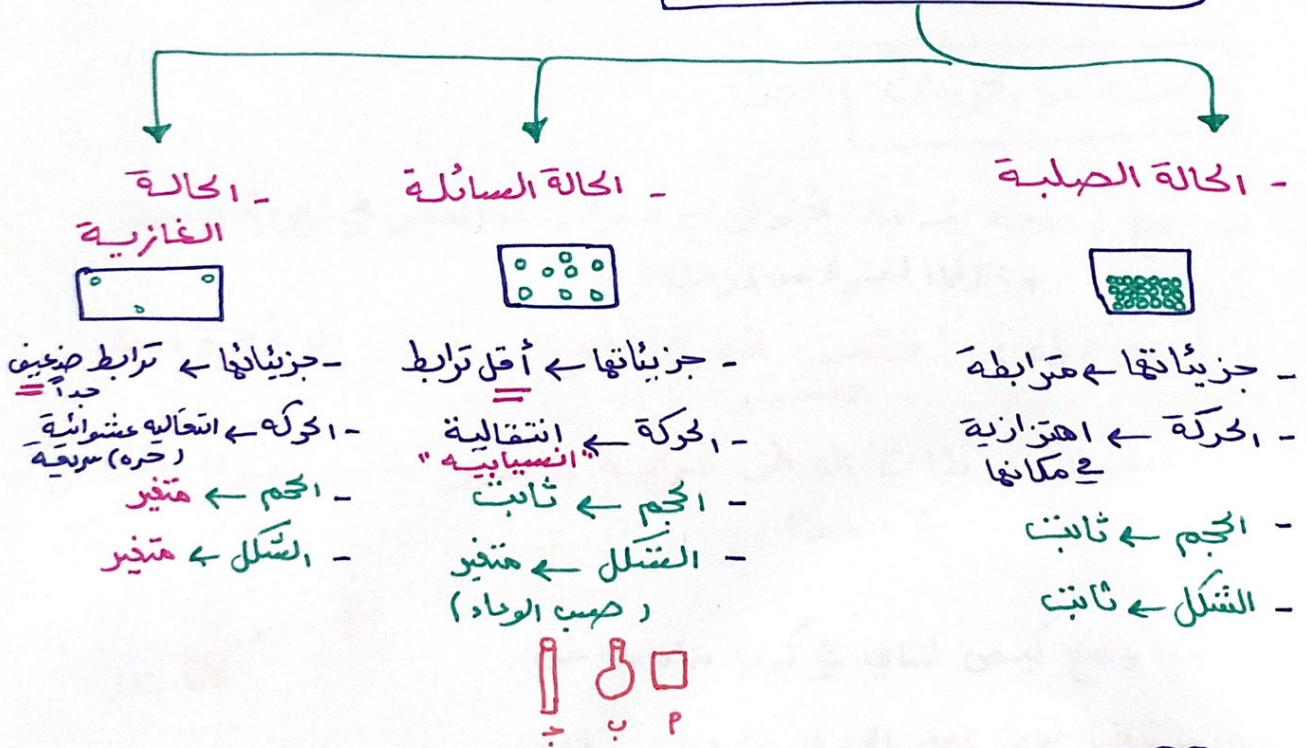 - الحالة الصلبة
- جزيئاتها ← مترابطة
- الحركة ← اهتزازية
في مكانها
- الحجم ← ثابت
- الشكل ← ثابت
- الحالة السائلة
- جزيئاتها ← أقل ترابط
- الحركة ← انتقالية
"انسيابيه"
- الحجم ← ثابت
- الشكل ← متغير
(حسب الوعاء)
أ ب ج
- الحالة
الغازية
- جزيئاتها ← ترابط ضعيف
جداً
- الحركه ← انتقاليه عشوائية
(حره) سريعة
- الحجم ← متغير
- الشكل ← متغير